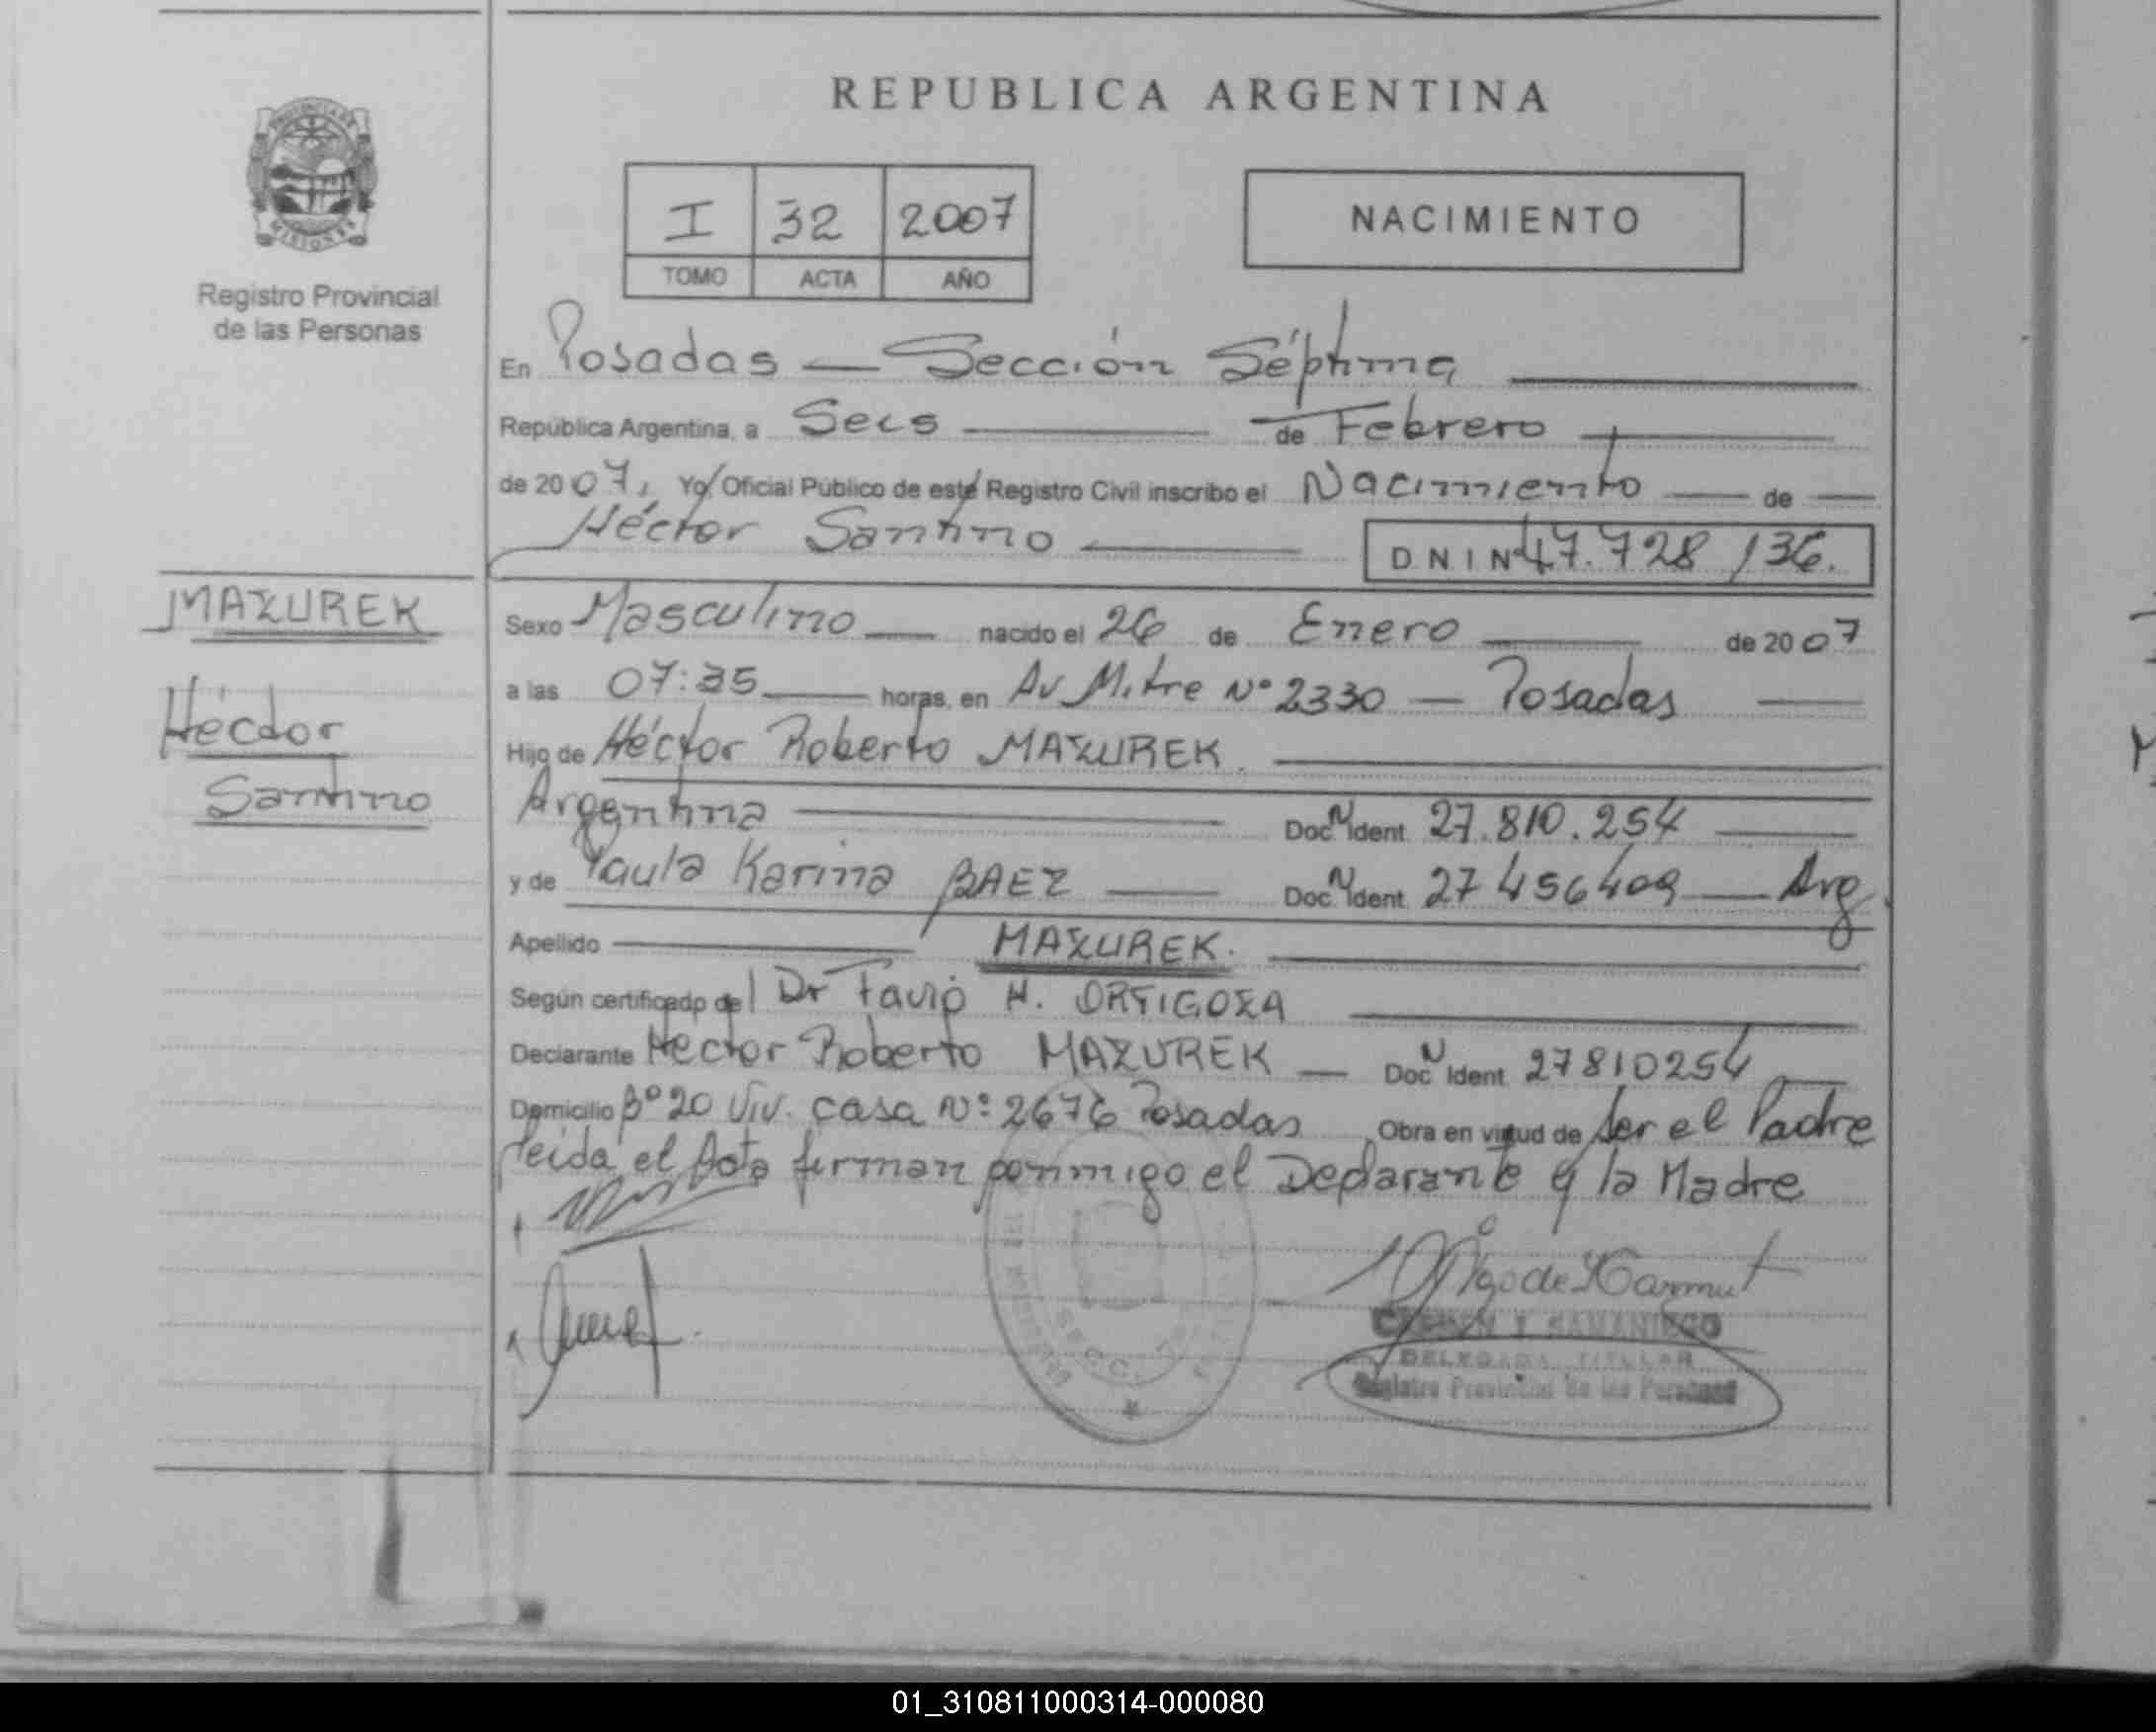 REPUBLICA ARGENTINA
I 32 2007
TOMO ACTA AÑO
NACIMIENTO
Registro Provincial
de las Personas
En Posadas — Sección Séptima
República Argentina, a Seis de Febrero
de 2007, Yo Oficial Público de este Registro Civil inscribo el Nacimiento de
Héctor Santino
D N I Nº 47.728 136.
MAZUREK
Héctor
Santino
Sexo Masculino nacido el 26 de Enero de 2007
a las 07:35 horas, en Av Mitre Nº 2330 — Posadas
Hijo de Héctor Roberto MAZUREK.
Argentina Doc. N Ident. 27.810.254
y de Paula Karina BAEZ Doc. N Ident. 27 456409 — Arg.
Apellido MAZUREK.
Según certificado del Dr Favio H. ORTIGOZA
Declarante Héctor Roberto MAZUREK — Doc N Ident. 27810254
Domicilio Bº 20 Viv. casa Nº 2676 Posadas Obra en virtud de ser el Padre
leída el Acta firman conmigo el Declarante y la Madre
SECC. 7
SAMANIEGO
DELEGADA TITULAR
Registro Provincial de las Personas
01_310811000314-000080